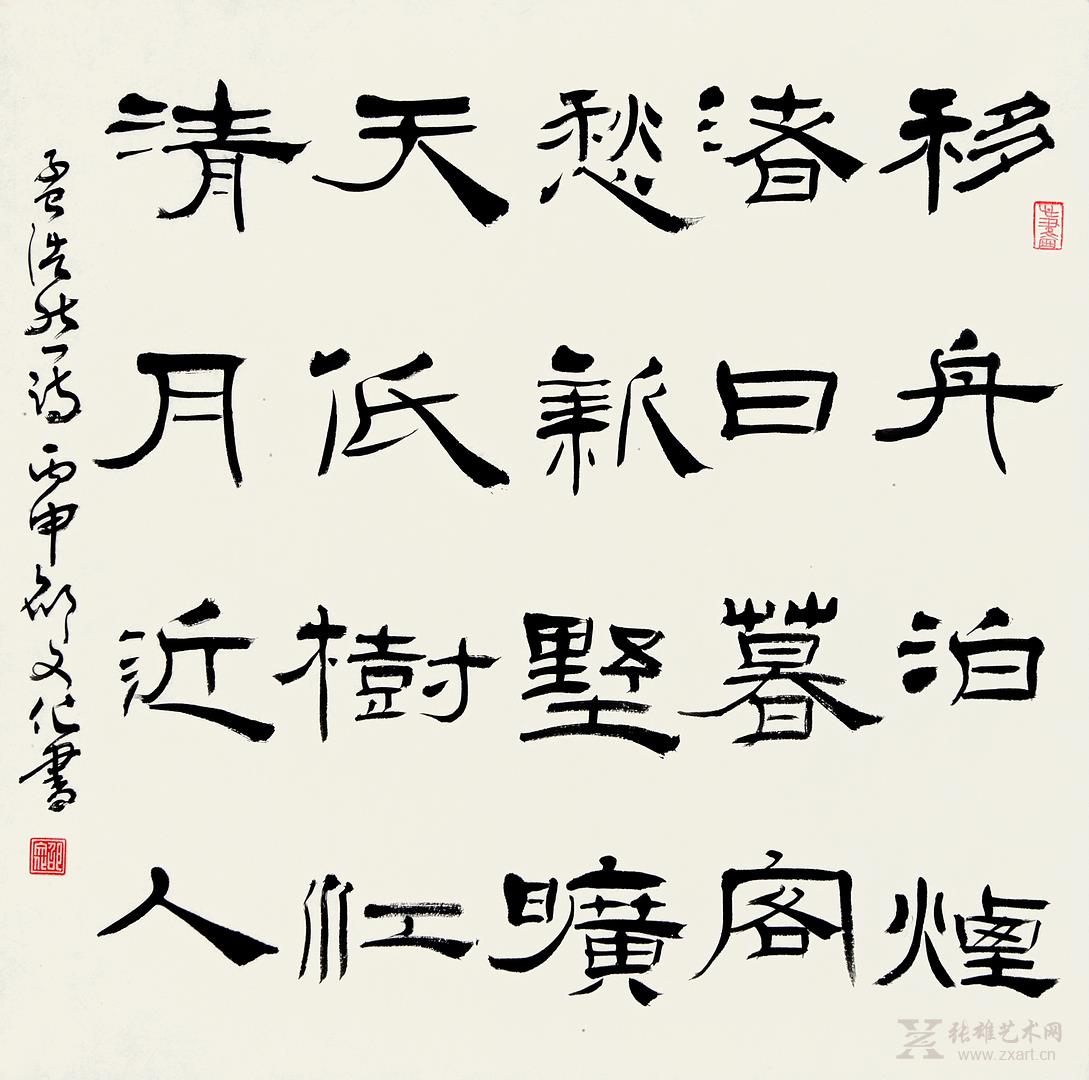 移舟泊煙
渚日暮客
愁新墅曠
天低樹江
清月近人
孟浩然一詩 丙申邵文化書
张雄艺术网
www.zxart.cn